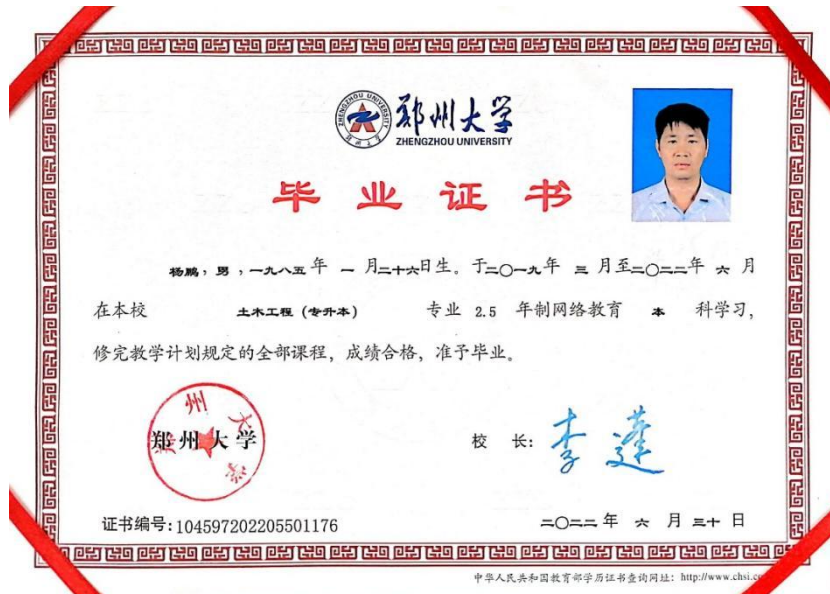 ZHENGZHOU UNIVERSITY
郑州大学
ZHENGZHOU UNIVERSITY
毕业证书
杨鹏，男，一九八五年 一 月二十六日生。于二〇一九年 三 月至二〇二二年 六 月
在本校 土木工程（专升本） 专业 2.5 年制网络教育 本 科学习，
修完教学计划规定的全部课程，成绩合格，准予毕业。
郑州大学
郑州大学
校 长：李蓬
证书编号：104597202205501176
二〇二二年 六 月 三十 日
中华人民共和国教育部学历证书查询网址：http://www.chsi.c